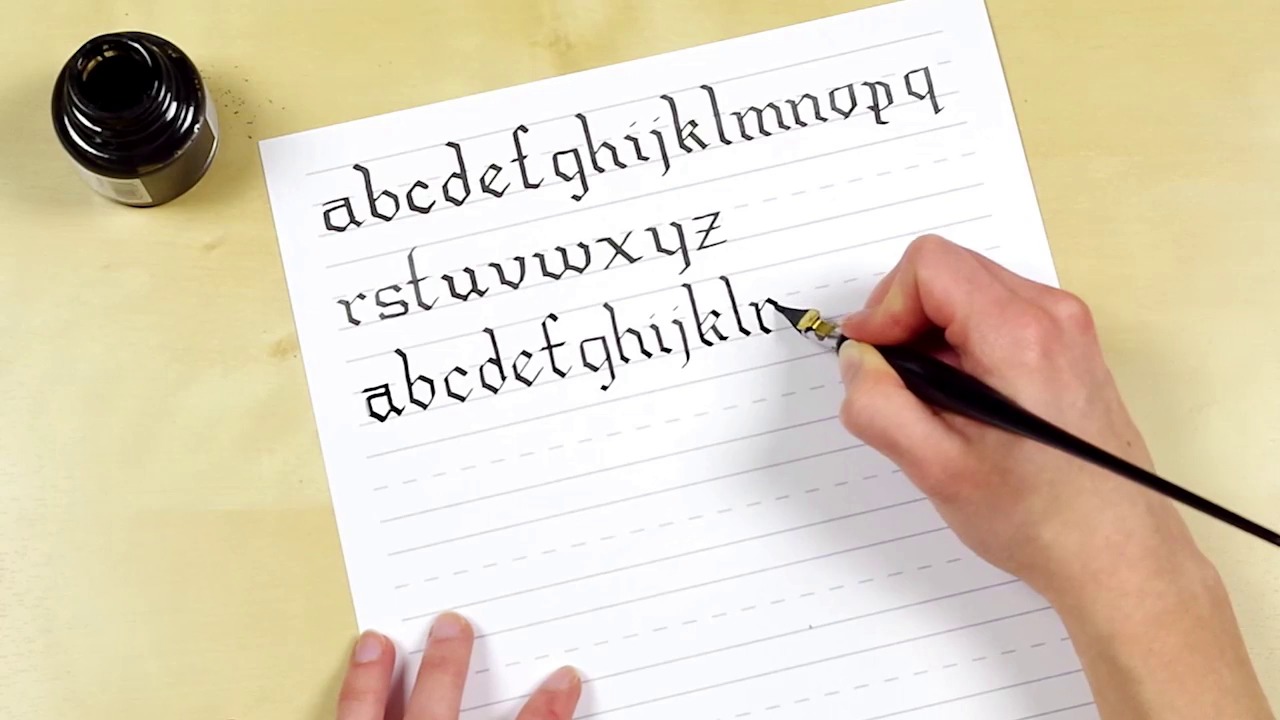 abcdefghijklmnopq
rstuvwxyz
abcdefghijkl